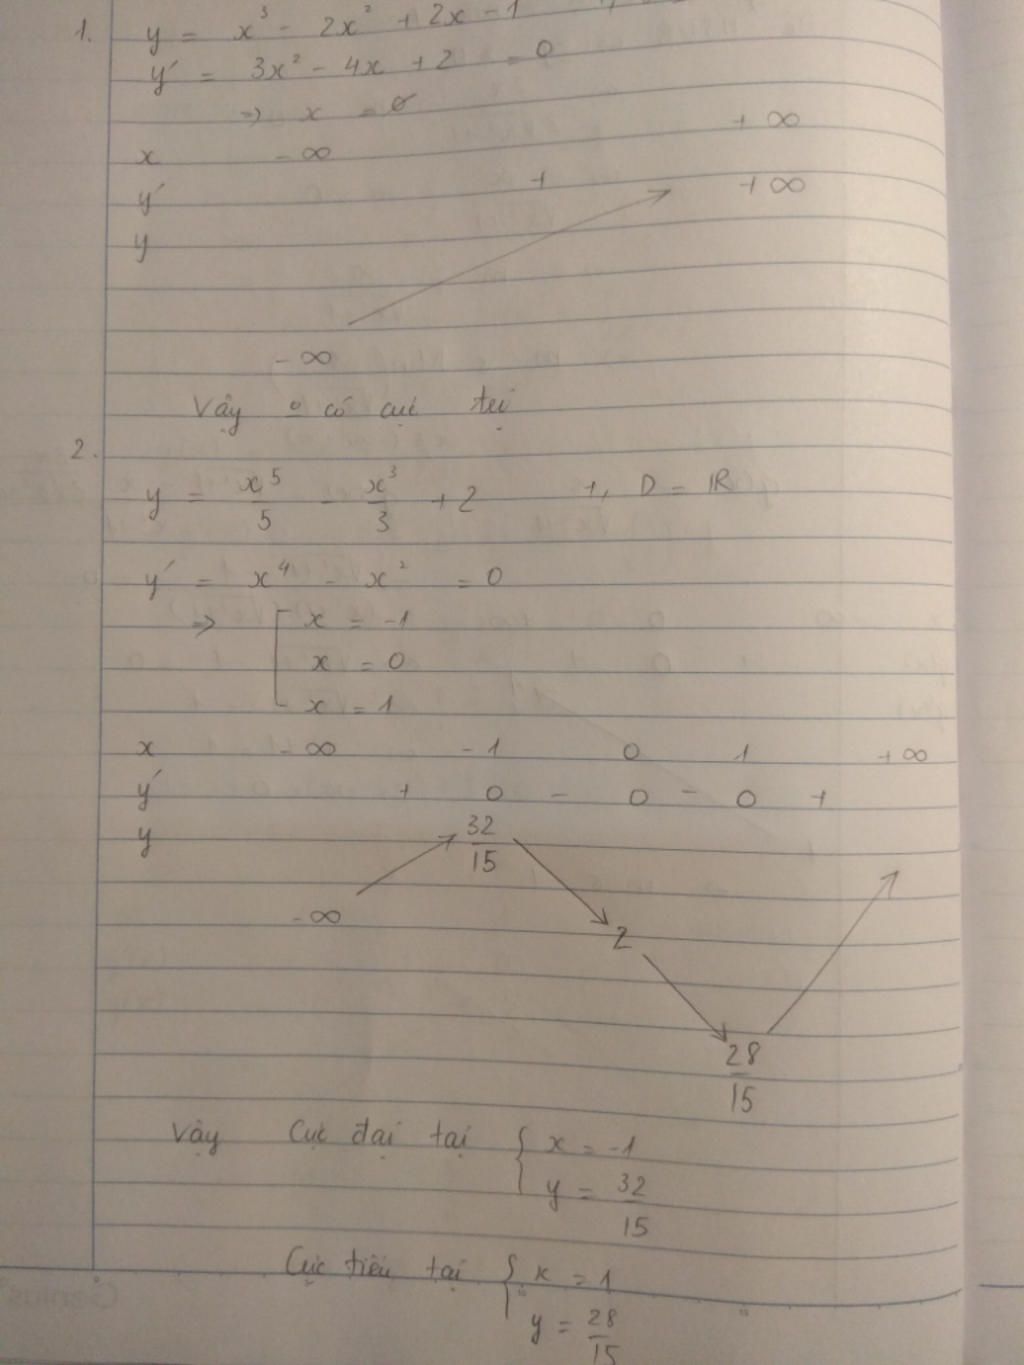 1. y = x³ - 2x² + 2x - 1
y' = 3x² - 4x + 2 = 0
⇒ x = ∅
x -∞ +∞
y' +
y +∞
-∞
Vậy o có cực trị
2.
y = x⁵/5 - x³/3 + 2 +, D = ℝ
y' = x⁴ - x² = 0
⇒ [ x = -1
x = 0
x = 1
x -∞ -1 0 1 +∞
y' + 0 - 0 - 0 +
y 32/15
-∞ 2
28/15
Vậy Cực đại tại { x = -1
y = 32/15
Cực tiểu tại { x = 1
y = 28/15